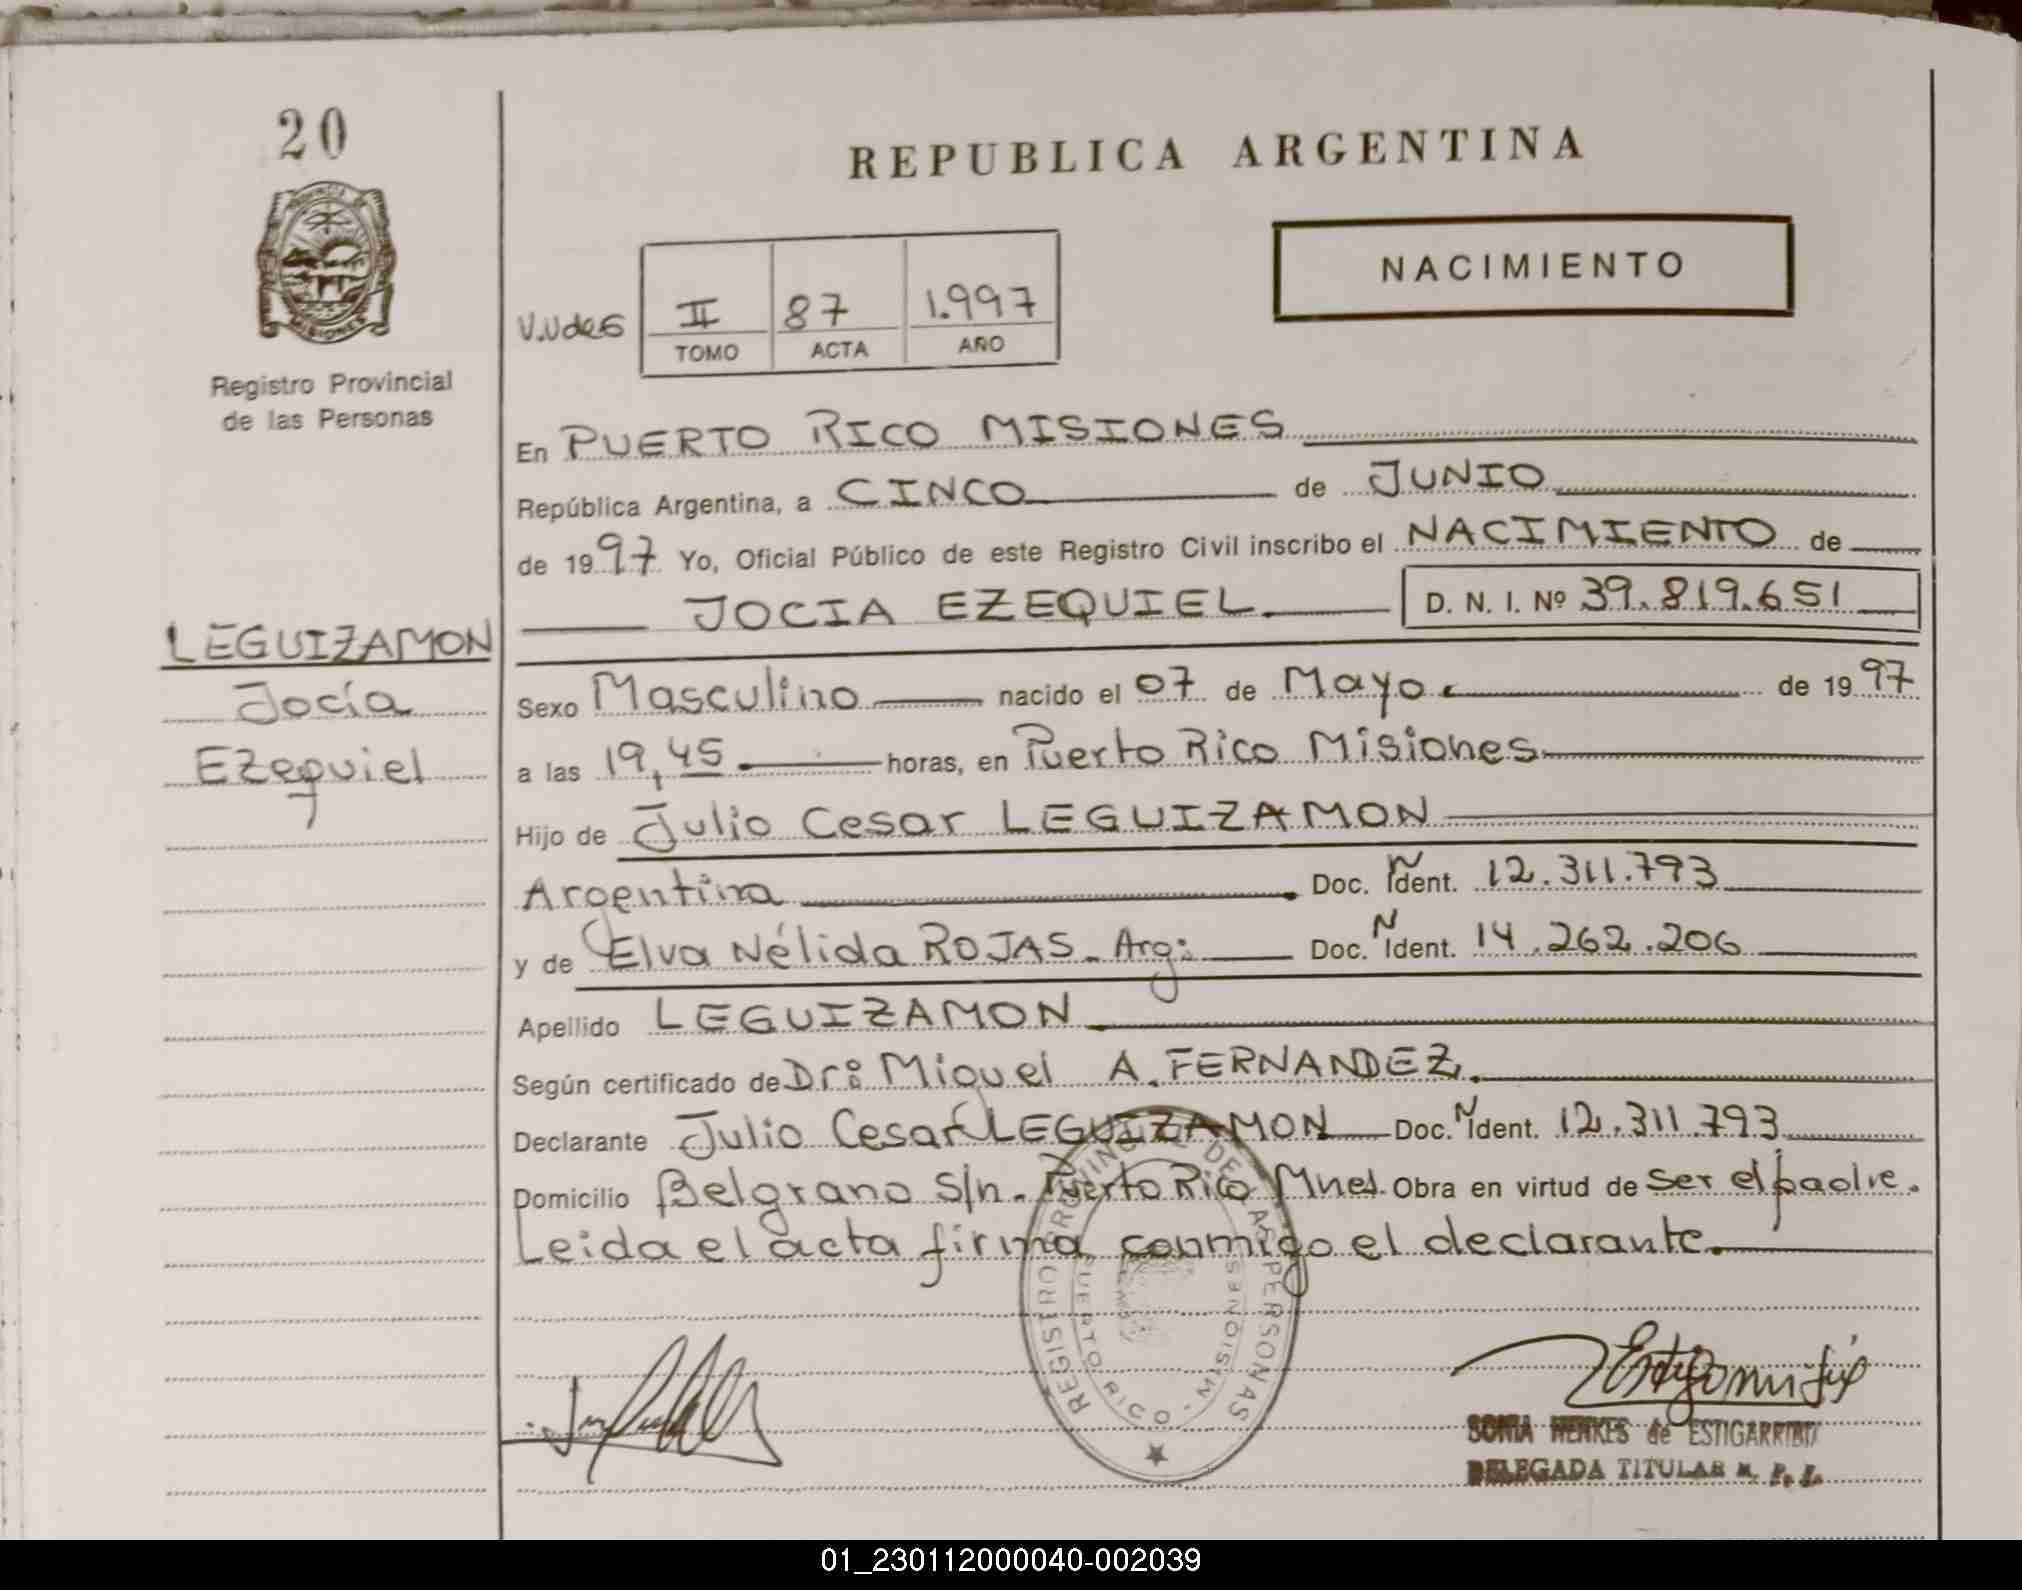 20
PROVINCIA DE
MISIONES
Registro Provincial
de las Personas
LEGUIZAMON
Jocía
Ezequiel
REPUBLICA ARGENTINA
NACIMIENTO
II 87 1.997
TOMO ACTA AÑO
En PUERTO RICO MISIONES
República Argentina, a CINCO de JUNIO
de 1997 Yo, Oficial Público de este Registro Civil inscribo el NACIMIENTO de
JOCIA EZEQUIEL. D. N. I. Nº 39.819.651
Sexo Masculino nacido el 07 de Mayo. de 1997
a las 19,45 horas, en Puerto Rico Misiones
Hijo de Julio Cesar LEGUIZAMON
Argentina Doc. N Ident. 12.311.793
y de Elva Nélida ROJAS. Arg: Doc. N Ident. 14.262.206
Apellido LEGUIZAMON
Según certificado de Dr: Miguel A. FERNANDEZ.
Declarante Julio Cesar LEGUIZAMON Doc. N Ident. 12.311.793
Domicilio Belgrano S/n. Puerto Rico Mnes. Obra en virtud de ser el padre.
Leida el acta firma conmigo el declarante.
REGISTRO PROVINCIAL DE LAS PERSONAS
PUERTO RICO - MISIONES
SONIA HENKES de ESTIGARRIBIA
DELEGADA TITULAR R. P. P.
01_230112000040-002039